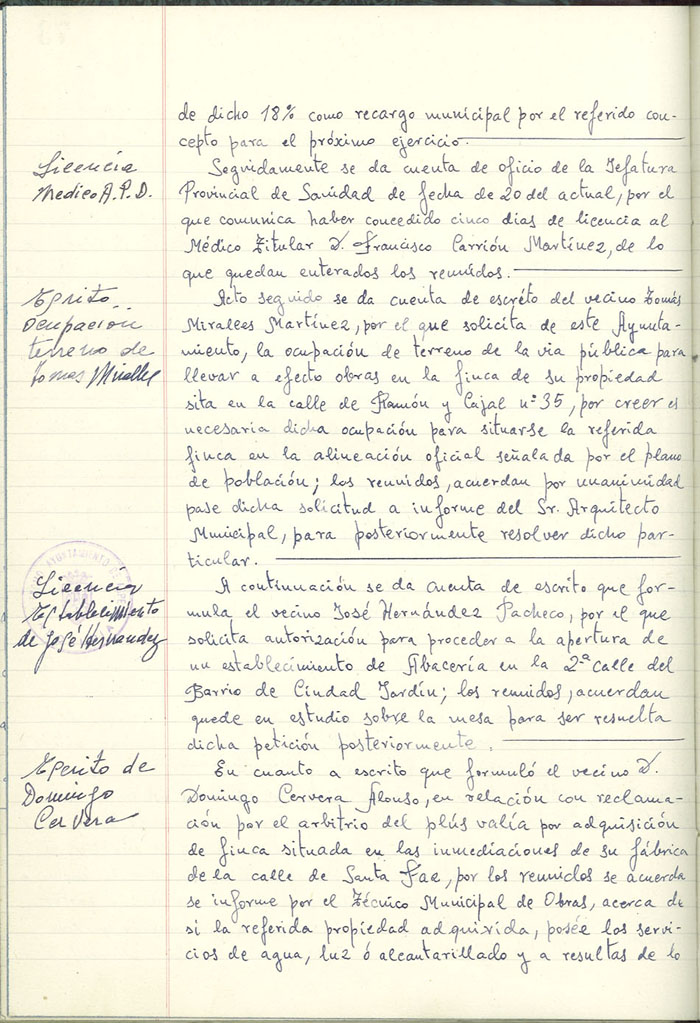 de dicho 18% como recargo municipal por el referido con-
cepto para el próximo ejercicio.
Licencia
Medico A.P.D.
Seguidamente se da cuenta de oficio de la Jefatura
Provincial de Sanidad de fecha de 20 del actual, por el
que comunica haber concedido cinco dias de licencia al
Médico Titular D. Francisco Carrión Martínez, de lo
que quedan enterados los reunidos.
Escrito
ocupación
terreno de
Tomas Miralles
Acto seguido se da cuenta de escrito del vecino Tomás
Miralles Martínez, por el que solicita de este Ayunta-
miento, la ocupación de terreno de la via pública para
llevar a efecto obras en la finca de su propiedad
sita en la calle de Ramón y Cajal nº 35, por creer es
necesaria dicha ocupación para situarse la referida
finca en la alineación oficial señalada por el plano
de población; los reunidos, acuerdan por unanimidad
pase dicha solicitud a informe del Sr. Arquitecto
Municipal, para posteriormente resolver dicho par-
ticular.
AYUNTAMIENTO
Licencia
Establecimiento
de José Hernandez
A continuación se da cuenta de escrito que for-
mula el vecino José Hernández Pacheco, por el que
solicita autorización para proceder a la apertura de
un establecimiento de Abacería en la 2ª calle del
Barrio de Ciudad Jardín; los reunidos, acuerdan
quede en estudio sobre la mesa para ser resuelta
dicha petición posteriormente.
Escrito de
Domingo
Cervera
En cuanto a escrito que formuló el vecino D.
Domingo Cervera Alonso, en relación con reclama-
ción por el arbitrio del plús valía por adquisición
de finca situada en las inmediaciones de su fábrica
de la calle de Santa Fae, por los reunidos se acuerda
se informe por el Técnico Municipal de Obras, acerca de
si la referida propiedad adquirida, posée los servi-
cios de agua, luz ó alcantarillado y a resultas de lo